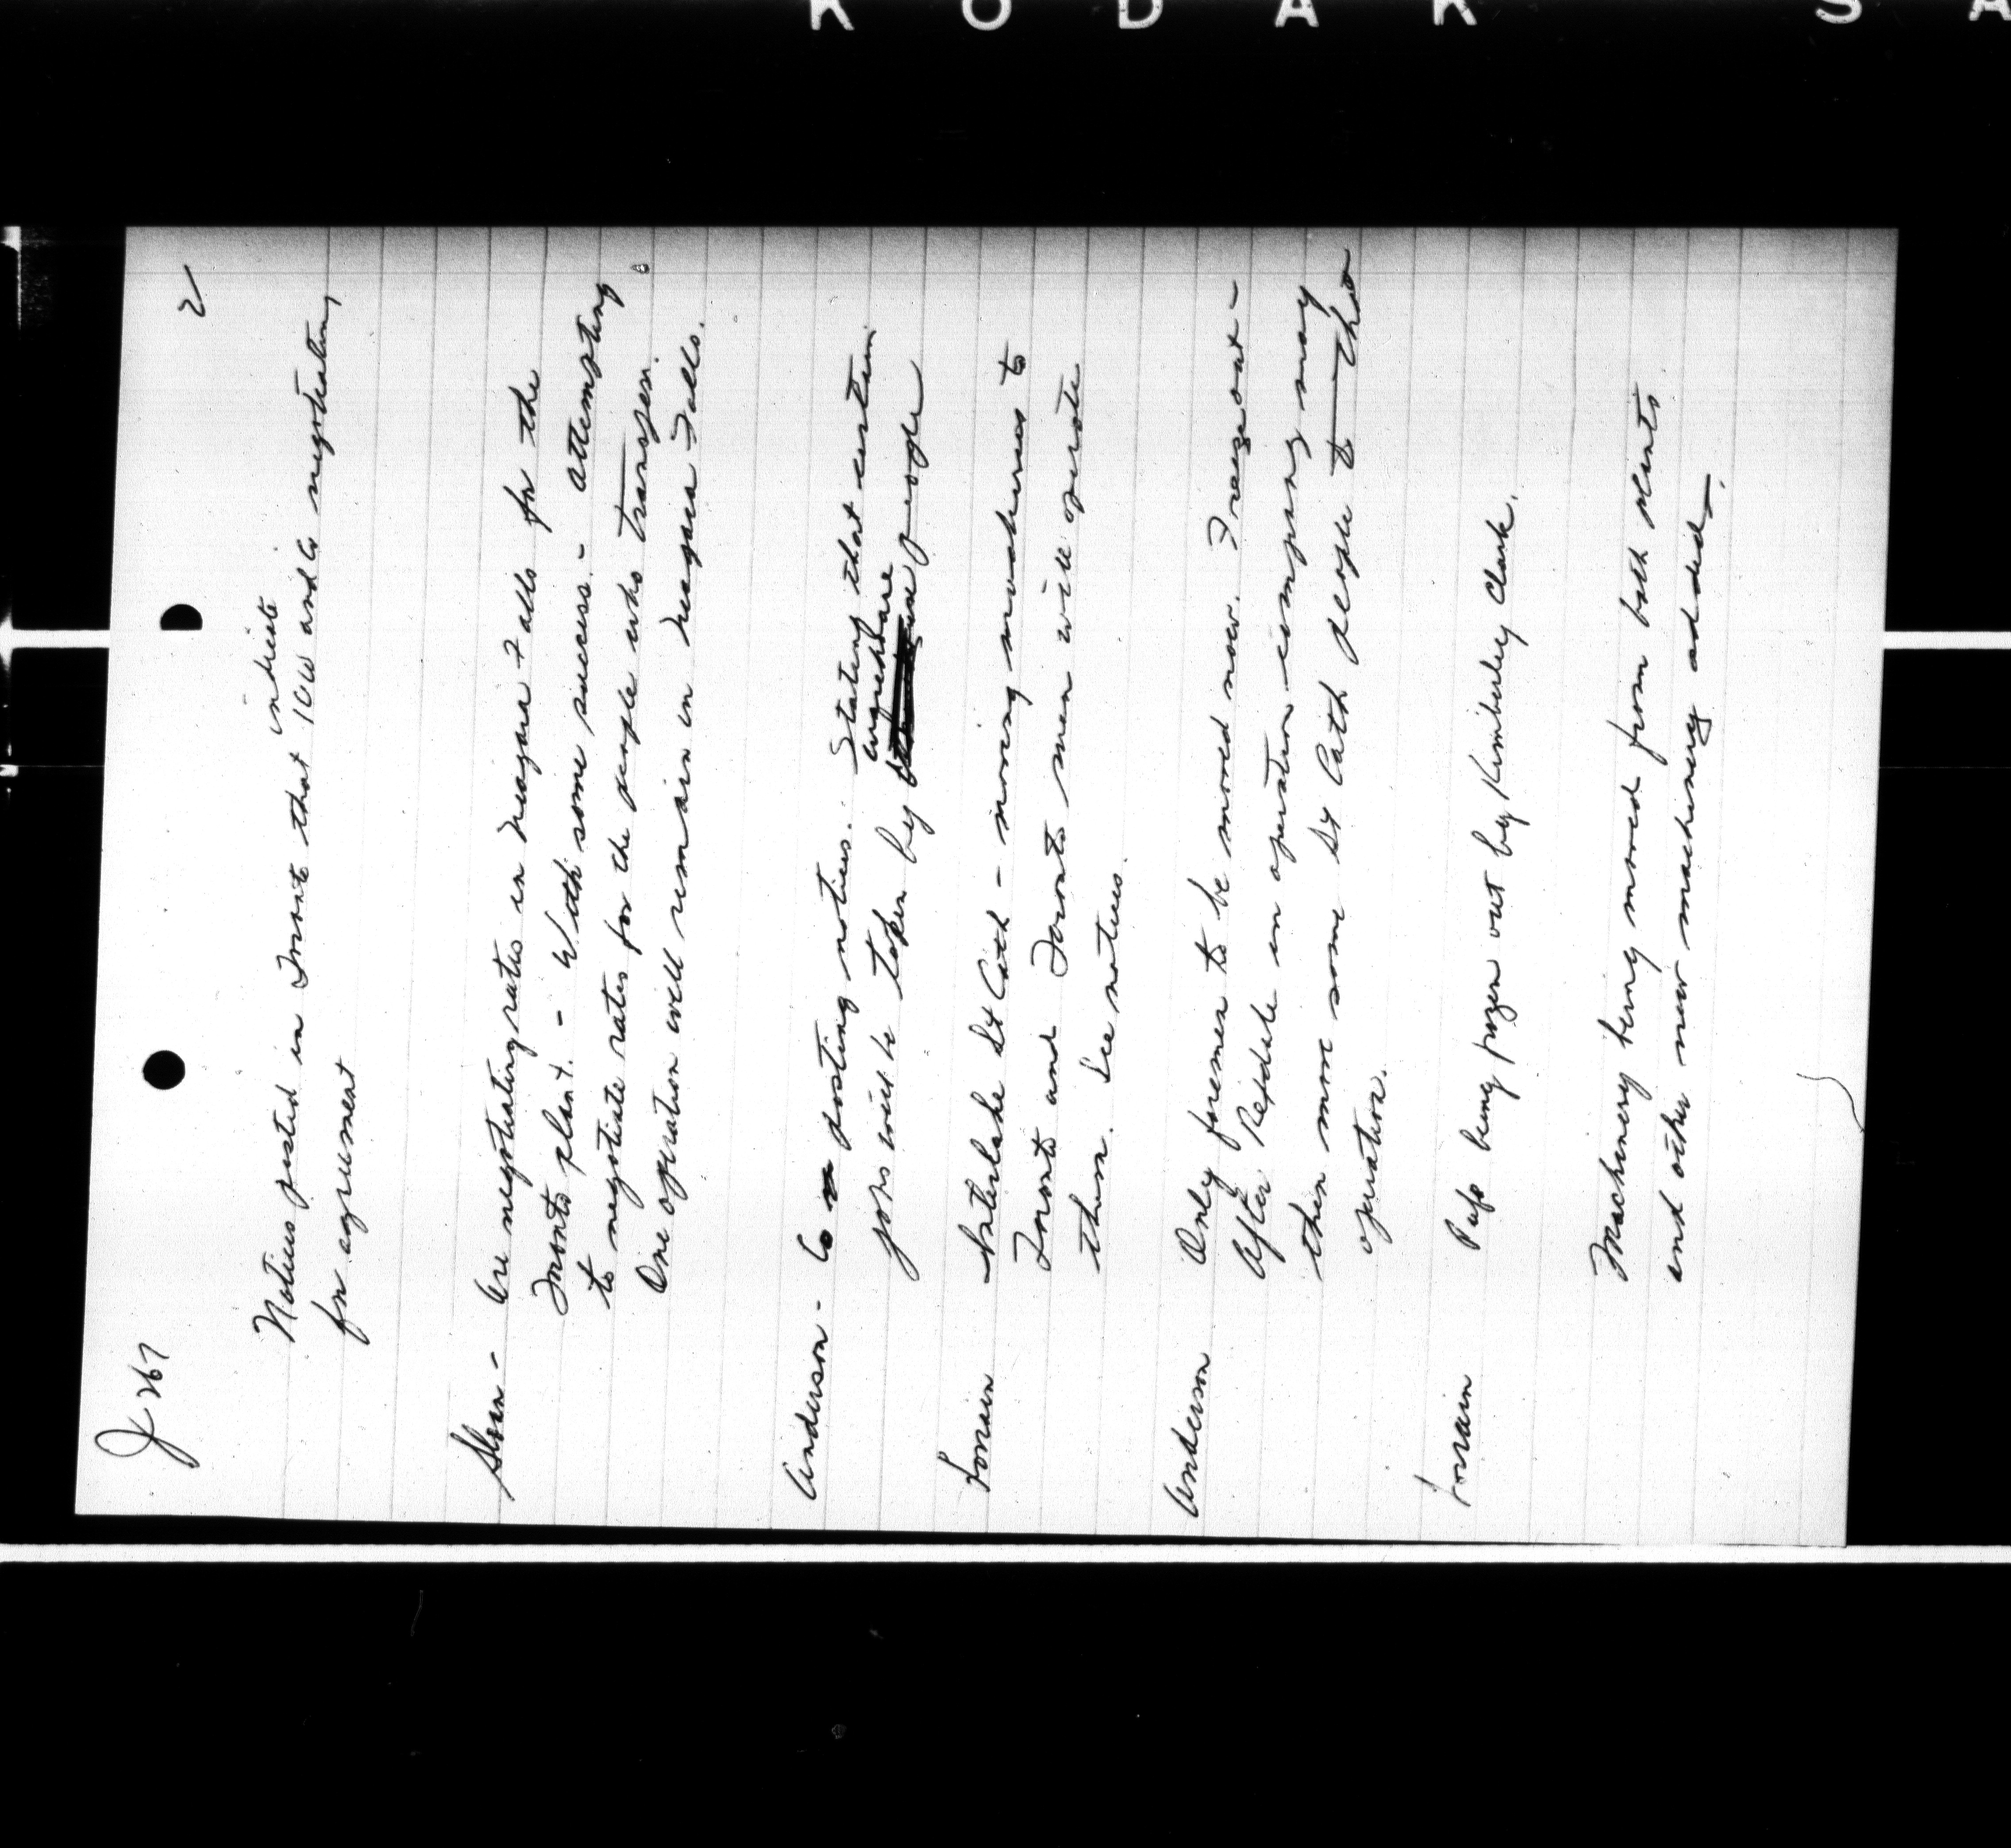 K O D A K S A
J 267
2
Notices posted in Toronto that indicate ICW and Co negotiating
for agreement
Sloan - are negotiating rates in Niagara Falls for the
Toronto plant. - With some success. - attempting
to negotiate rates for the people who transfer.
One operation will remain in Niagara Falls.
Anderson - Co posting notices. Stating that certain
jobs will be taken by elsewhere people
Lorrain Interlake St Cath - moving machines to
Toronto and Toronto men will operate
them. See notices.
Anderson Only foremen to be moved now. Freeze out -
After Rexdale in operation company may
then move some St Cath people to that
operation.
Lorrain Pulp being frozen out by Kimberley Clark.
Machinery being moved from both plants
and other new machinery added.